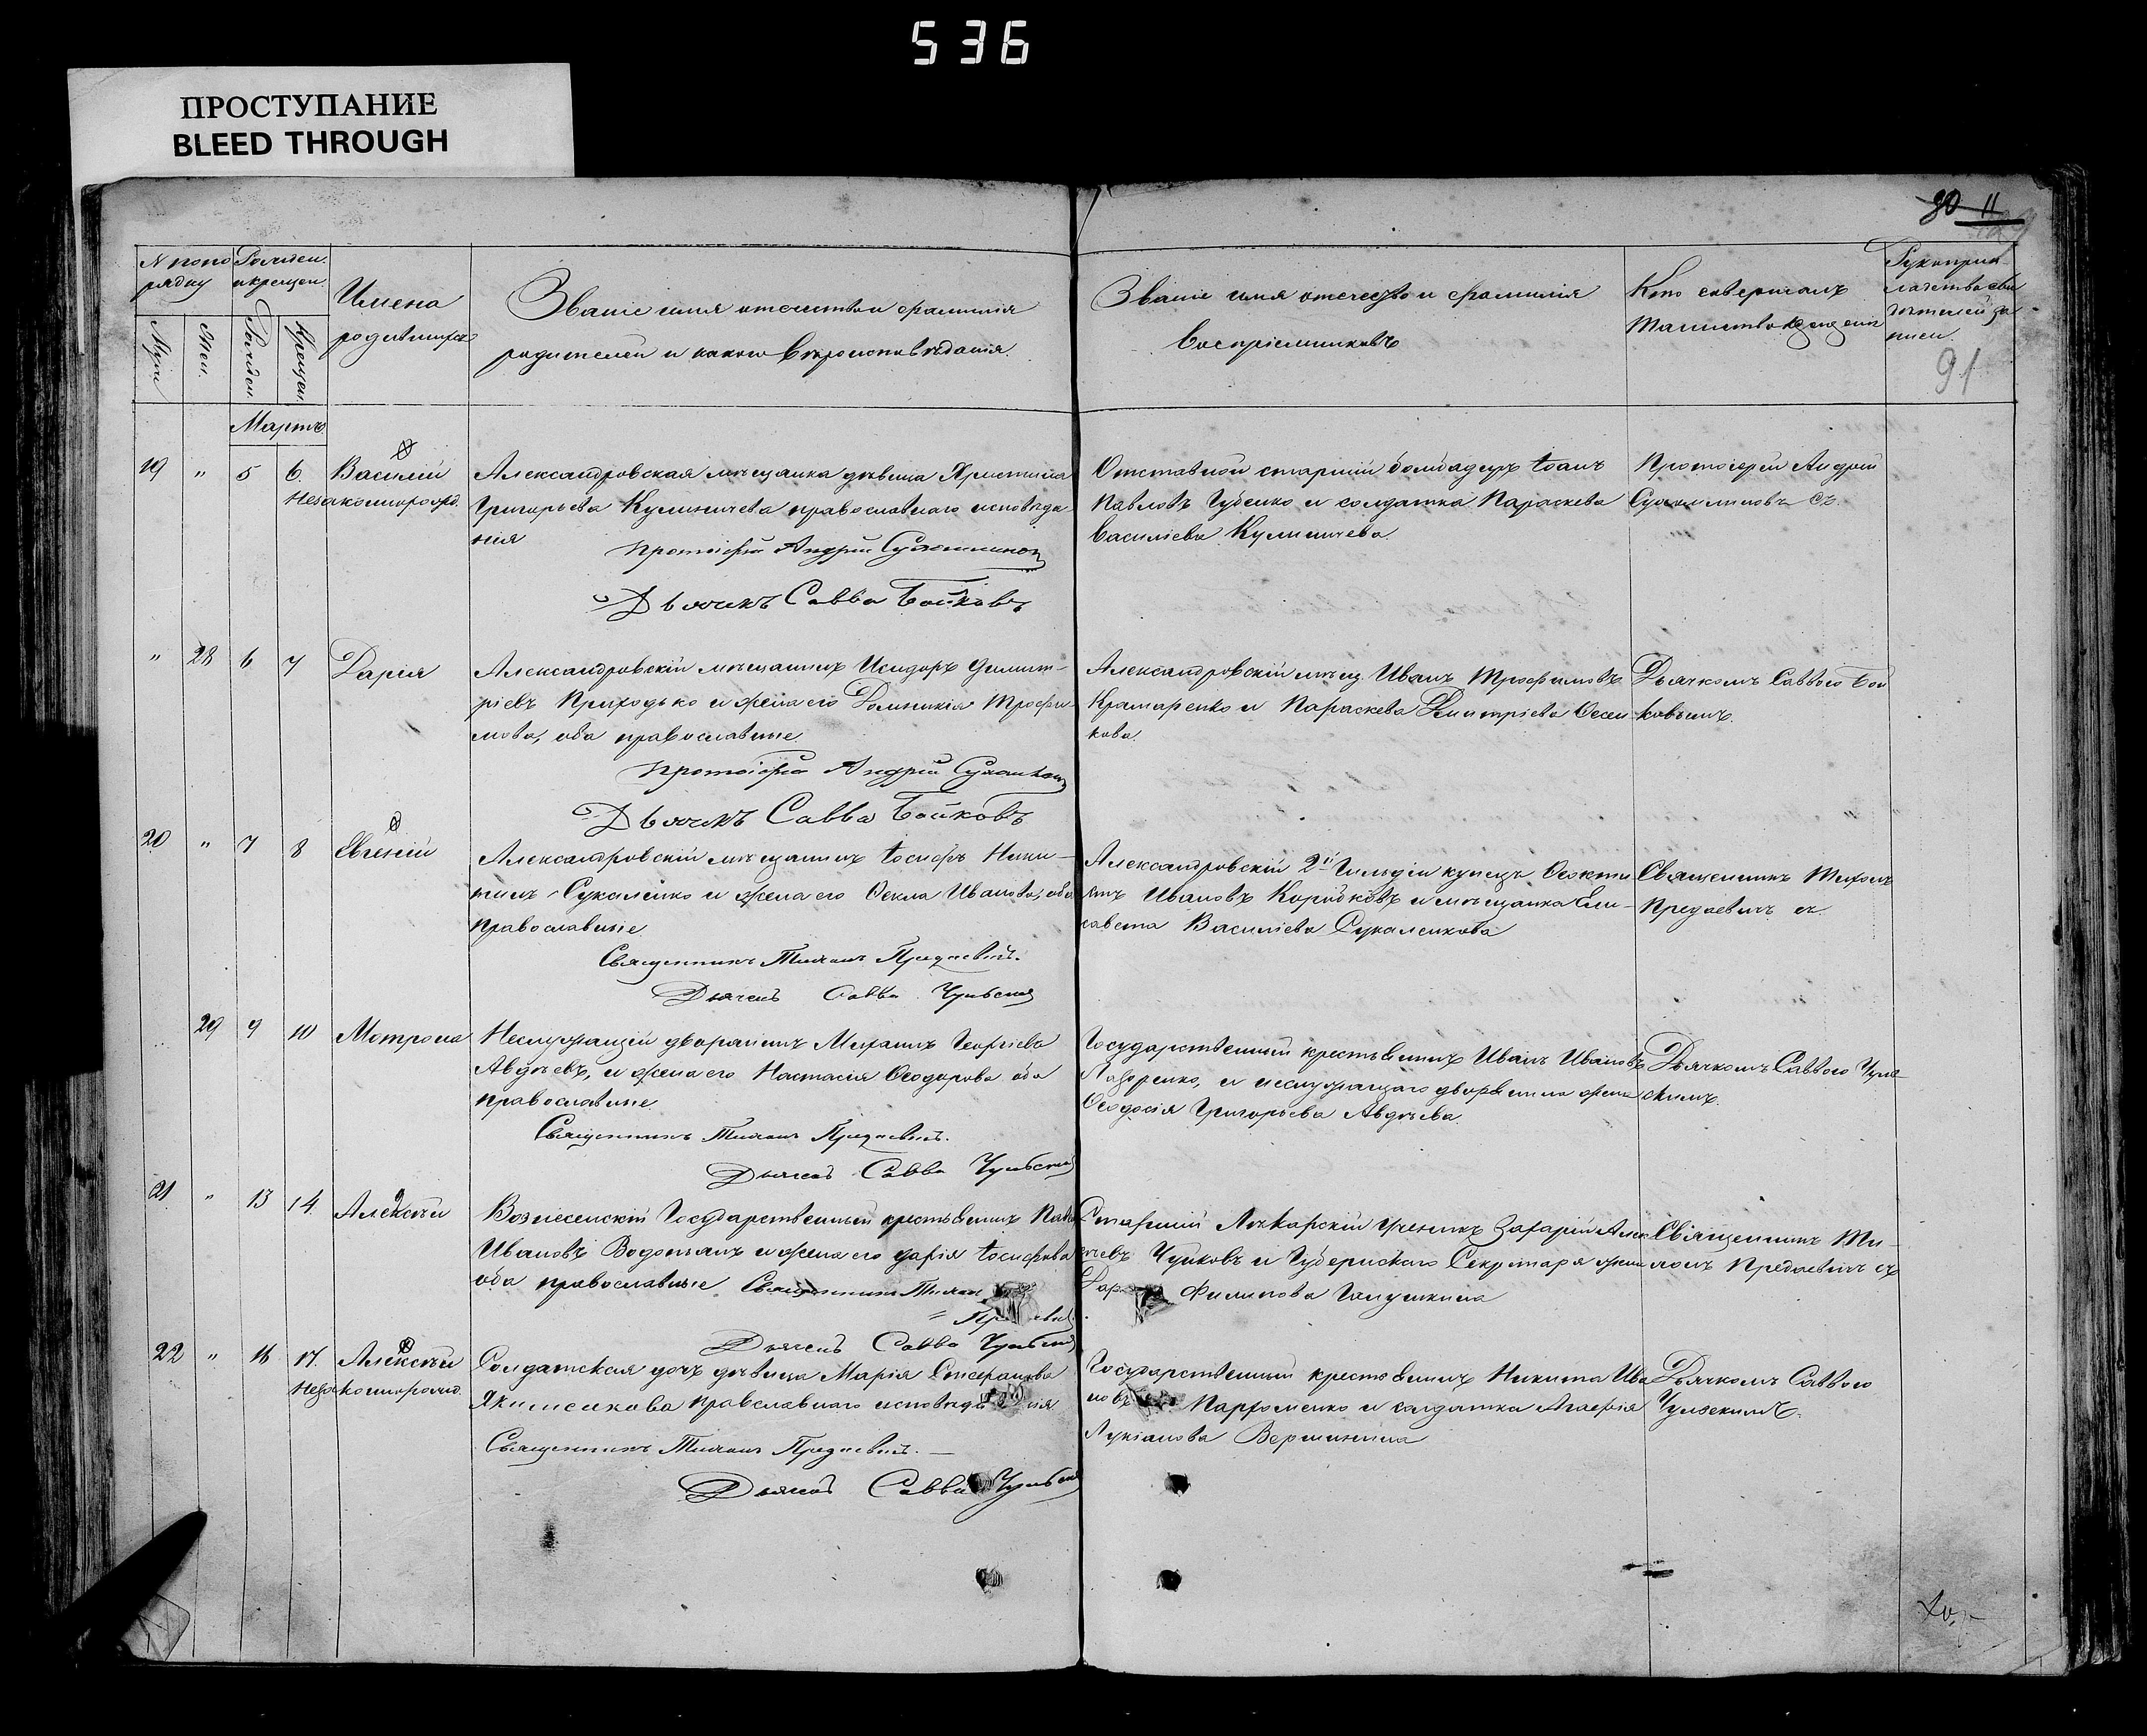 536
ПРОСТУПАНИЕ
BLEED THROUGH
80 11
91
N по по
рядку
Рожден.
и крещен.
Муж
Жен.
Рожден.
Крещен.
Имена
родившихся
Званіе имя отчество и фамилія
родителей и какого вѣроисповѣданія.
Званіе имя отчество и фамилія
воспріемниковъ
Кто совершалъ
таинство крещенія
Рукоприк-
ладство сви
дѣтелей за
писи.
Мартъ
19 " 5 6. Василій
Незаконнорожд.
Александровская мѣщанка дѣвица Христина
Григорьева Кулиничева православнаго исповѣда-
нія
Протоіерей Андрей Сухомлиновъ
Дьячекъ Савва Бойковъ
Отставной старшій бомбадиръ Іоанъ
Павловъ Губенко и солдатка Параскева
Василіева Кулиничева.
Протоіерей Андрей
Сухомлиновъ съ.
" 28 6 7 Дарія
Александровскій мѣщанинъ Исидоръ Димит-
ріевъ Приходько и жена его Домникія Трофи-
мова, оба православные
Протоіерей Андрей
Дьячекъ Савва Бойковъ
Александровскій мѣщ. Иванъ Трофимовъ
Крамаренко и Параскева Дмитріева Осен-
кова.
Дьячкомъ Саввою Бой
ковымъ.
20 " 7 8 Евгеній
Александровскій мѣщанинъ Іосифъ Ники-
тинъ Сукаленко и жена его Ѳекла Иванова, оба
православные
Священникъ Тихонъ Предаевичъ.
Дьячекъ Савва Чульскій
Александровскій 2й Гильдіи купецъ Ѳеокти
стъ Ивановъ Коробковъ и мѣщанка Ели-
савета Василіева Сукаленкова
Священникъ Тихонъ
Предаевичъ съ.
29 9 10 Мотрона
Неслужащій дворянинъ Михаилъ Георгіевъ
Авдѣевъ, и жена его Настасія Ѳеодорова оба
православные.
Священникъ Тихонъ Предаевичъ.
Дьячекъ Савва Чульскій
Государственный крестьянинъ Иванъ Ивановъ
Лазоренко, и неслужащаго дворянина жена
Ѳеодосія Григорьева Авдѣева.
Дьячкомъ Саввою Чуль-
скимъ.
21. " 13 14. Алексѣй
Вознесенскій Государственный крестьянинъ
Ивановъ Водотыкъ и жена его Дарія Іосифова
оба православные Священникъ Тихонъ
Дьячекъ Савва Чульскій
Старшій Лѣкарскій ученикъ Захарій Алек
сѣевъ Чуйковъ и Губернскаго Секретаря жена
Филипова Галушкина
Священникъ Ти-
хонъ Предаевичъ съ
22 " 16 17. Алексѣй
Незаконнорожд.
Солдатская дочь дѣвица Марія Стефанова
Якименкова православнаго исповѣданія
Священникъ Тихонъ Предаевичъ.
Дьячекъ Савва Чульскій
Государственный крестьянинъ Никита Ива
новъ Парфоменко и солдатка Агафія
Лукіанова Вершинина
Дьячкомъ Саввою
Чульскимъ.